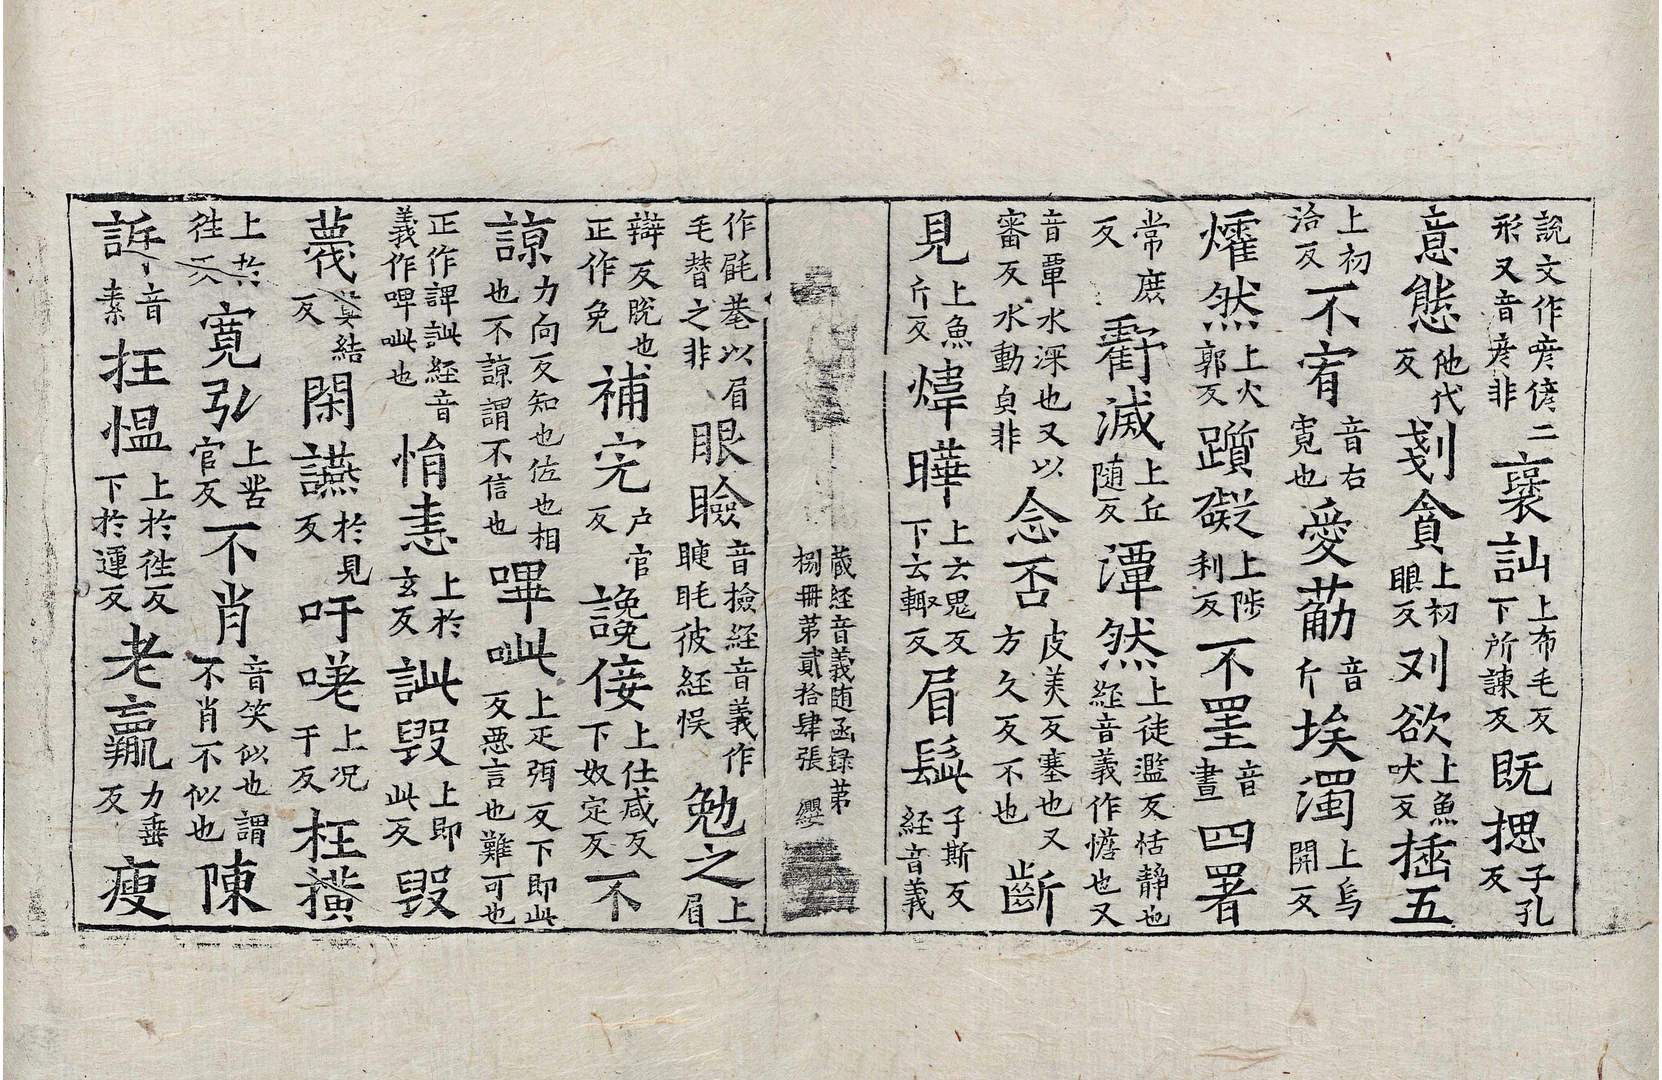 說文作喭偐二形又音彦非褒訕上布毛反下所諫反既揌子孔反
意態他代反剗貪上初眼反刈欲上魚吠反揷五
上初洛反不宥音右寬也愛葂音斤埃濁上烏開反
燿然上火郭反躓礙上陟利反不罣音畫四署
常庶反虧滅上丘隨反潭然上徒濫反恬静也經音義作憺也又
音覃水深也又以審反水動皃非念否皮美反塞也又方久反不也斷
見上魚斤反煒曄上云鬼反下云輒反眉髭子斯反經音義
藏經音義随函録第捌冊第貳拾肆張 纓
作毻毷以眉毛替之非眼瞼音撿經音義作睫毦彼經悮勉之上眉
辯反脫也正作免補完户官反讒倿上仕咸反下奴定反不
諒力向反知也佐也相也不諒謂不信也嗶呲上疋弭反下即此反悪言也難可也
正作諀訿經音義作啤呲也悁恚上於玄反訿毀上即此反毀
蔑莫結反閑讌於見反吁嗟上况于反枉橫
上於往反寬弘上苦官反不肖音笑似也謂不肖不似也陳
訴音素抂愠上於往反下於運反老羸力垂反瘦